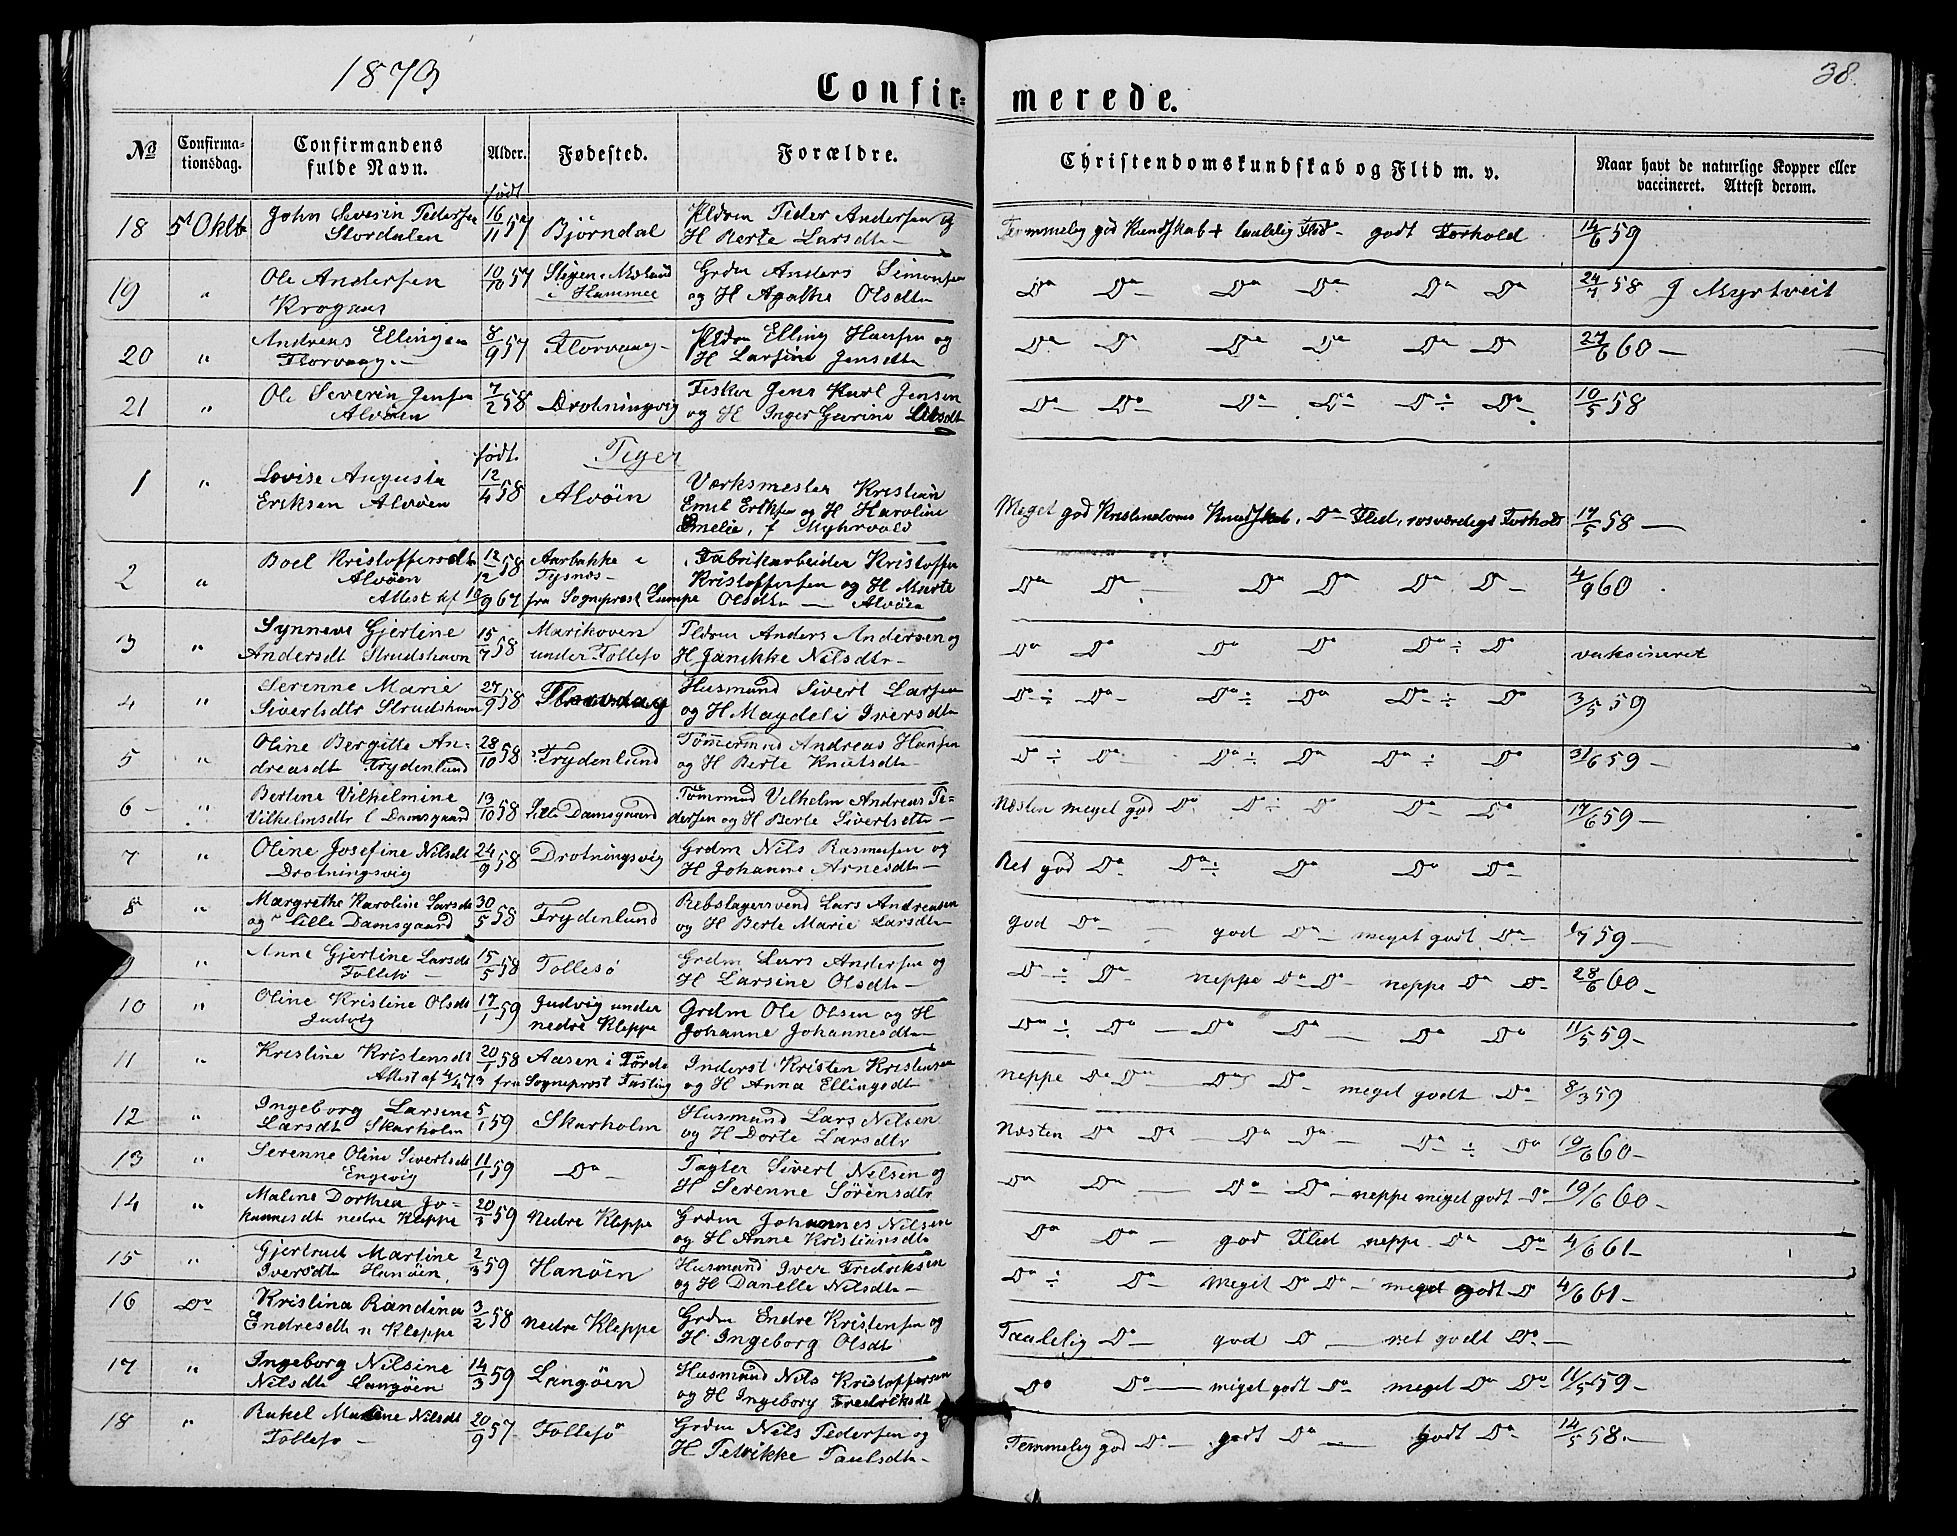 1873
38.
Confir=
merede.
No
Confirma-
tionsdag.
Confirmandens
fulde Navn.
Alder.
Fødested.
Forældre.
Christendomskundskab og Flid m. v.
Naar havt de naturlige Kopper eller
vaccineret. Attest derom.
født
18 5t Oktb John Severin Pedersen 16/11 57 Bjørndal Pldrm Peder Andersen og Temmelig god Kundskab + taalelig Flid - godt Forhold 14/6 59
Stordalen H Berte Larsdtr
19 " Ole Andersen 10/10 57 Grdm Anders Simonsen Do Do Do Do Do Do 24/7 58 J Myrtveit
i Hammer og H Agathe Olsdtr
20 " Andreas Ellingsen 8/9 57 Florvaag Pldrm Elling Hansen og Do Do Do Do Do Do 27/6 60
Florvaag H Larsine Jensdtr
21 " Ole Severin Jensen 7/2 58 Drotningvig Fisker Jens Karl Jensen Do Do Do Do Do ÷ Do 10/5 58
Alvøen og H Inger Gurine
født Piger
1 " Lovise Augusta 12/4 58 Alvøin Værksmester Kristian
Eriksen Alvøen Emil Eriksen og H Karoline Meget god Kristendoms Kundskab, Do Flid, rosværdigt Forhold 17/5 58
Emelie, f Myhrvold
2 " Boel Kristoffersdtr 12/12 58 Aarbakke i Fabrikarbeider Kristoffer
Alvøen Tysnæs Kristoffersen og H Marte Do Do Do Do Do Do 4/9 60
Attest af 18/9 67 fra Sogneprest Lampe Olsdtr Alvøen
3 " Synneve Gjertine 15/7 58 Marihoven Pldrm Anders Andersen og Do Do Do Do Do ÷ Do vaksineret
Andersdt Strudshavn under Follesø H Janikke Nilsdtr
4 " Serenne Marie 27/9 58 Husmand Sivert Larsen Do ÷ Do Do ÷ Do Do ÷ Do 3/5 59
Sivertsdtr Strudshavn og H Magdeli Iversdtr
5 " Oline Bergitte An- 28/10 58 Frydenlund Tømmermd Andreas Hansen Do ÷ Do Do ÷ Do Do ÷ Do 3/6 59
dreasdt Frydenlund og H Berte Knutsdtr
6 " Bertine Vilhelmine 13/10 58 Lille Damsgaard Tømrmd Vilhelm Andreas Pe- Næsten meget god Do Do ÷ Do Do Do 17/6 59
Vilhelmsdtr l Damsgaard dersen og H Berte Sivertsdtr
7 " Oline Josefine Nilsdt 24/9 58 Drotningsvig Grdm Nils Rasmussen og Ret god Do Do ÷ Do Do Do
Drotningsvig H Johanne Arnesdtr
8 " Margrethe Karoline Larsdt 30/5 58 Frydenlund Rebslagersvend Lars Andreasen god Do god Do meget godt Do 1/7 59
Lille Damsgaard og H Berte Marie Larsdtr
9 " Anne Gjertine Larsdt 15/5 58 Follesø Grdm Lars Andersen og Do ÷ Do neppe Do Do neppe Do Do 28/6 60
Follesø H Larsine Olsdtr
10 " Oline Kristine Olsdt 17/1 59 Judvig under Grdm Ole Olsen og H Do ÷ Do Do Do Do Do 11/5 59
Judvig nedre Kleppe Johanne Johannesdtr
11 " Kristine Kristensdt 20/1 58 Aasen i Førde Inderst Kristen Kristensen neppe Do Do Do Do meget godt Do 8/3 59
Attest af 4/4 73 fra Sogneprost Fasting og H Anna Ellingsdtr
12 " Ingeborg Larsine 5/1 59 Skarholm Husmand Lars Nilsen Næsten Do Do Do Do Do ÷ Do 19/6 60
Larsdt Skarholm og H Dorte Larsdtr
13 " Serenne Oline Sivertsdt 11/1 59 Do Sivert Nilsen og Do Do Do Do neppe meget godt Do 19/6 60
Engevig H Serenne Sørensdtr
14 " Maline Dorthea Jo- 20/3 59 nedre Kleppe Grdm Johannes Nilsen Do Do god Flid neppe Do Do 4/6 61
hannesdt nedre Kleppe og H Anne Kristiansdtr
15 " Gjertrud Martine 2/3 59 Hanøen Husmand Iver Fredriksen Do ÷ Do meget Do Do meget godt Do 4/6 61
Iversdtr Hanøen og H Danelle Nilsdtr
16 Do Kristina Randina 3/2 58 nedre Kleppe Grdm Endre Kristensen og Taalelig Do god Do ret godt Do
Endresdtr n Kleppe H Ingeborg Olsdtr
17 " Ingeborg Nilsine 14/3 59 Langøen Husmand Nils Kristoffersen Do Do meget godt Do meget Do Do 11/5 59
Nilsdtr Langøen og H Ingeborg Fredriksdt
18 " Rakel Malene Nilsdt 20/9 57 Follesø Grdm Nils Pedersen og Temmelig god Do godt Do godt Do 14/5 58
Follesø H Petrikke Paulsdtr